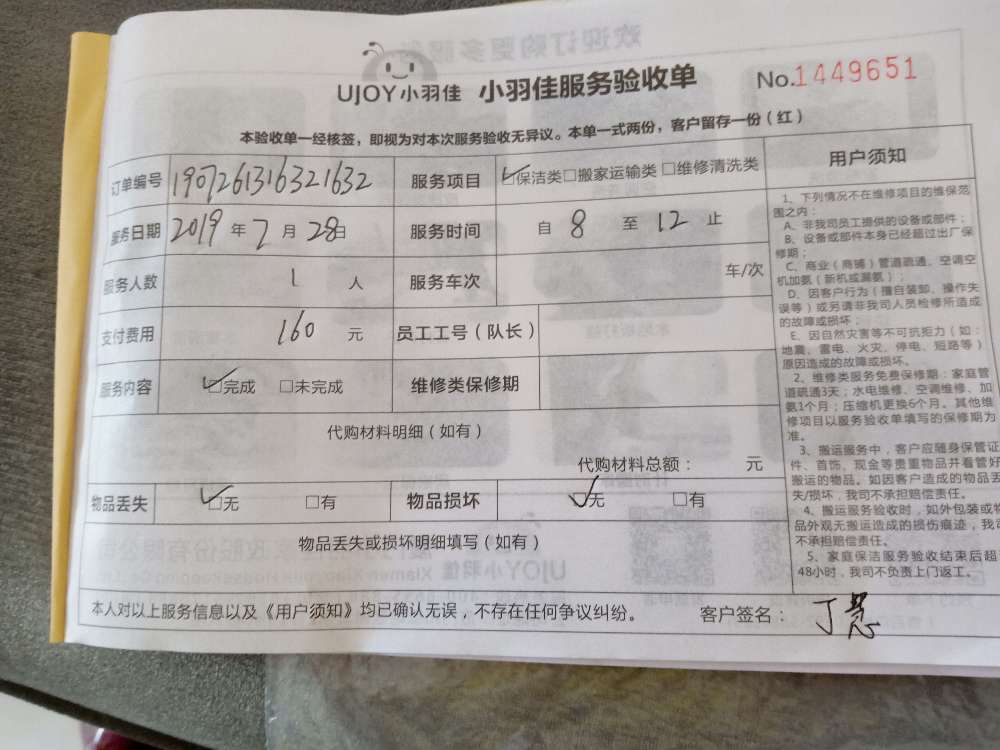 UJOY小羽佳 小羽佳服务验收单 No.1449651
本验收单一经核签，即视为对本次服务验收无异议。本单一式两份，客户留存一份（红）
订单编号 1907261316321632 服务项目 ☑保洁类□搬家运输类□维修清洗类
服务日期 2019年7月28日 服务时间 自 8 至 12 止
服务人数 1 人 服务车次 车/次
支付费用 160 元 员工工号（队长）
服务内容 ☑完成 □未完成 维修类保修期
代购材料明细（如有）
代购材料总额： 元
物品丢失 ☑无 □有 物品损坏 ☑无 □有
物品丢失或损坏明细填写（如有）
本人对以上服务信息以及《用户须知》均已确认无误，不存在任何争议纠纷。 客户签名：丁慧
用户须知
1、下列情况不在维修项目的维保范
围之内：
A、非我司员工提供的设备或部件；
B、设备或部件本身已经超过出厂保
修期；
C、商业（商铺）管道疏通、空调空
机加氨（新机或漏氨）；
D、因客户行为（擅自装卸、操作失
误等）或另请非我司人员检修所造成
的故障或损坏；
E、因自然灾害等不可抗拒力（如：
地震、雷电、火灾、停电、短路等）
原因造成的故障或损坏。
2、维修类服务免费保修期：家庭管
道疏通3天；水电维修、空调维修、加
氨1个月；压缩机更换6个月。其他维
修项目以服务验收单填写的保修期为
准。
3、搬运服务中，客户应随身保管证
件、首饰、现金等贵重物品并看管好
搬运的物品。如因客户造成的物品丢
失/损坏，我司不承担赔偿责任。
4、搬运服务验收时，如外包装或物
品外观无搬运造成的损伤痕迹，我司
不承担赔偿责任。
5、家庭保洁服务验收结束后超
48小时，我司不负责上门返工。